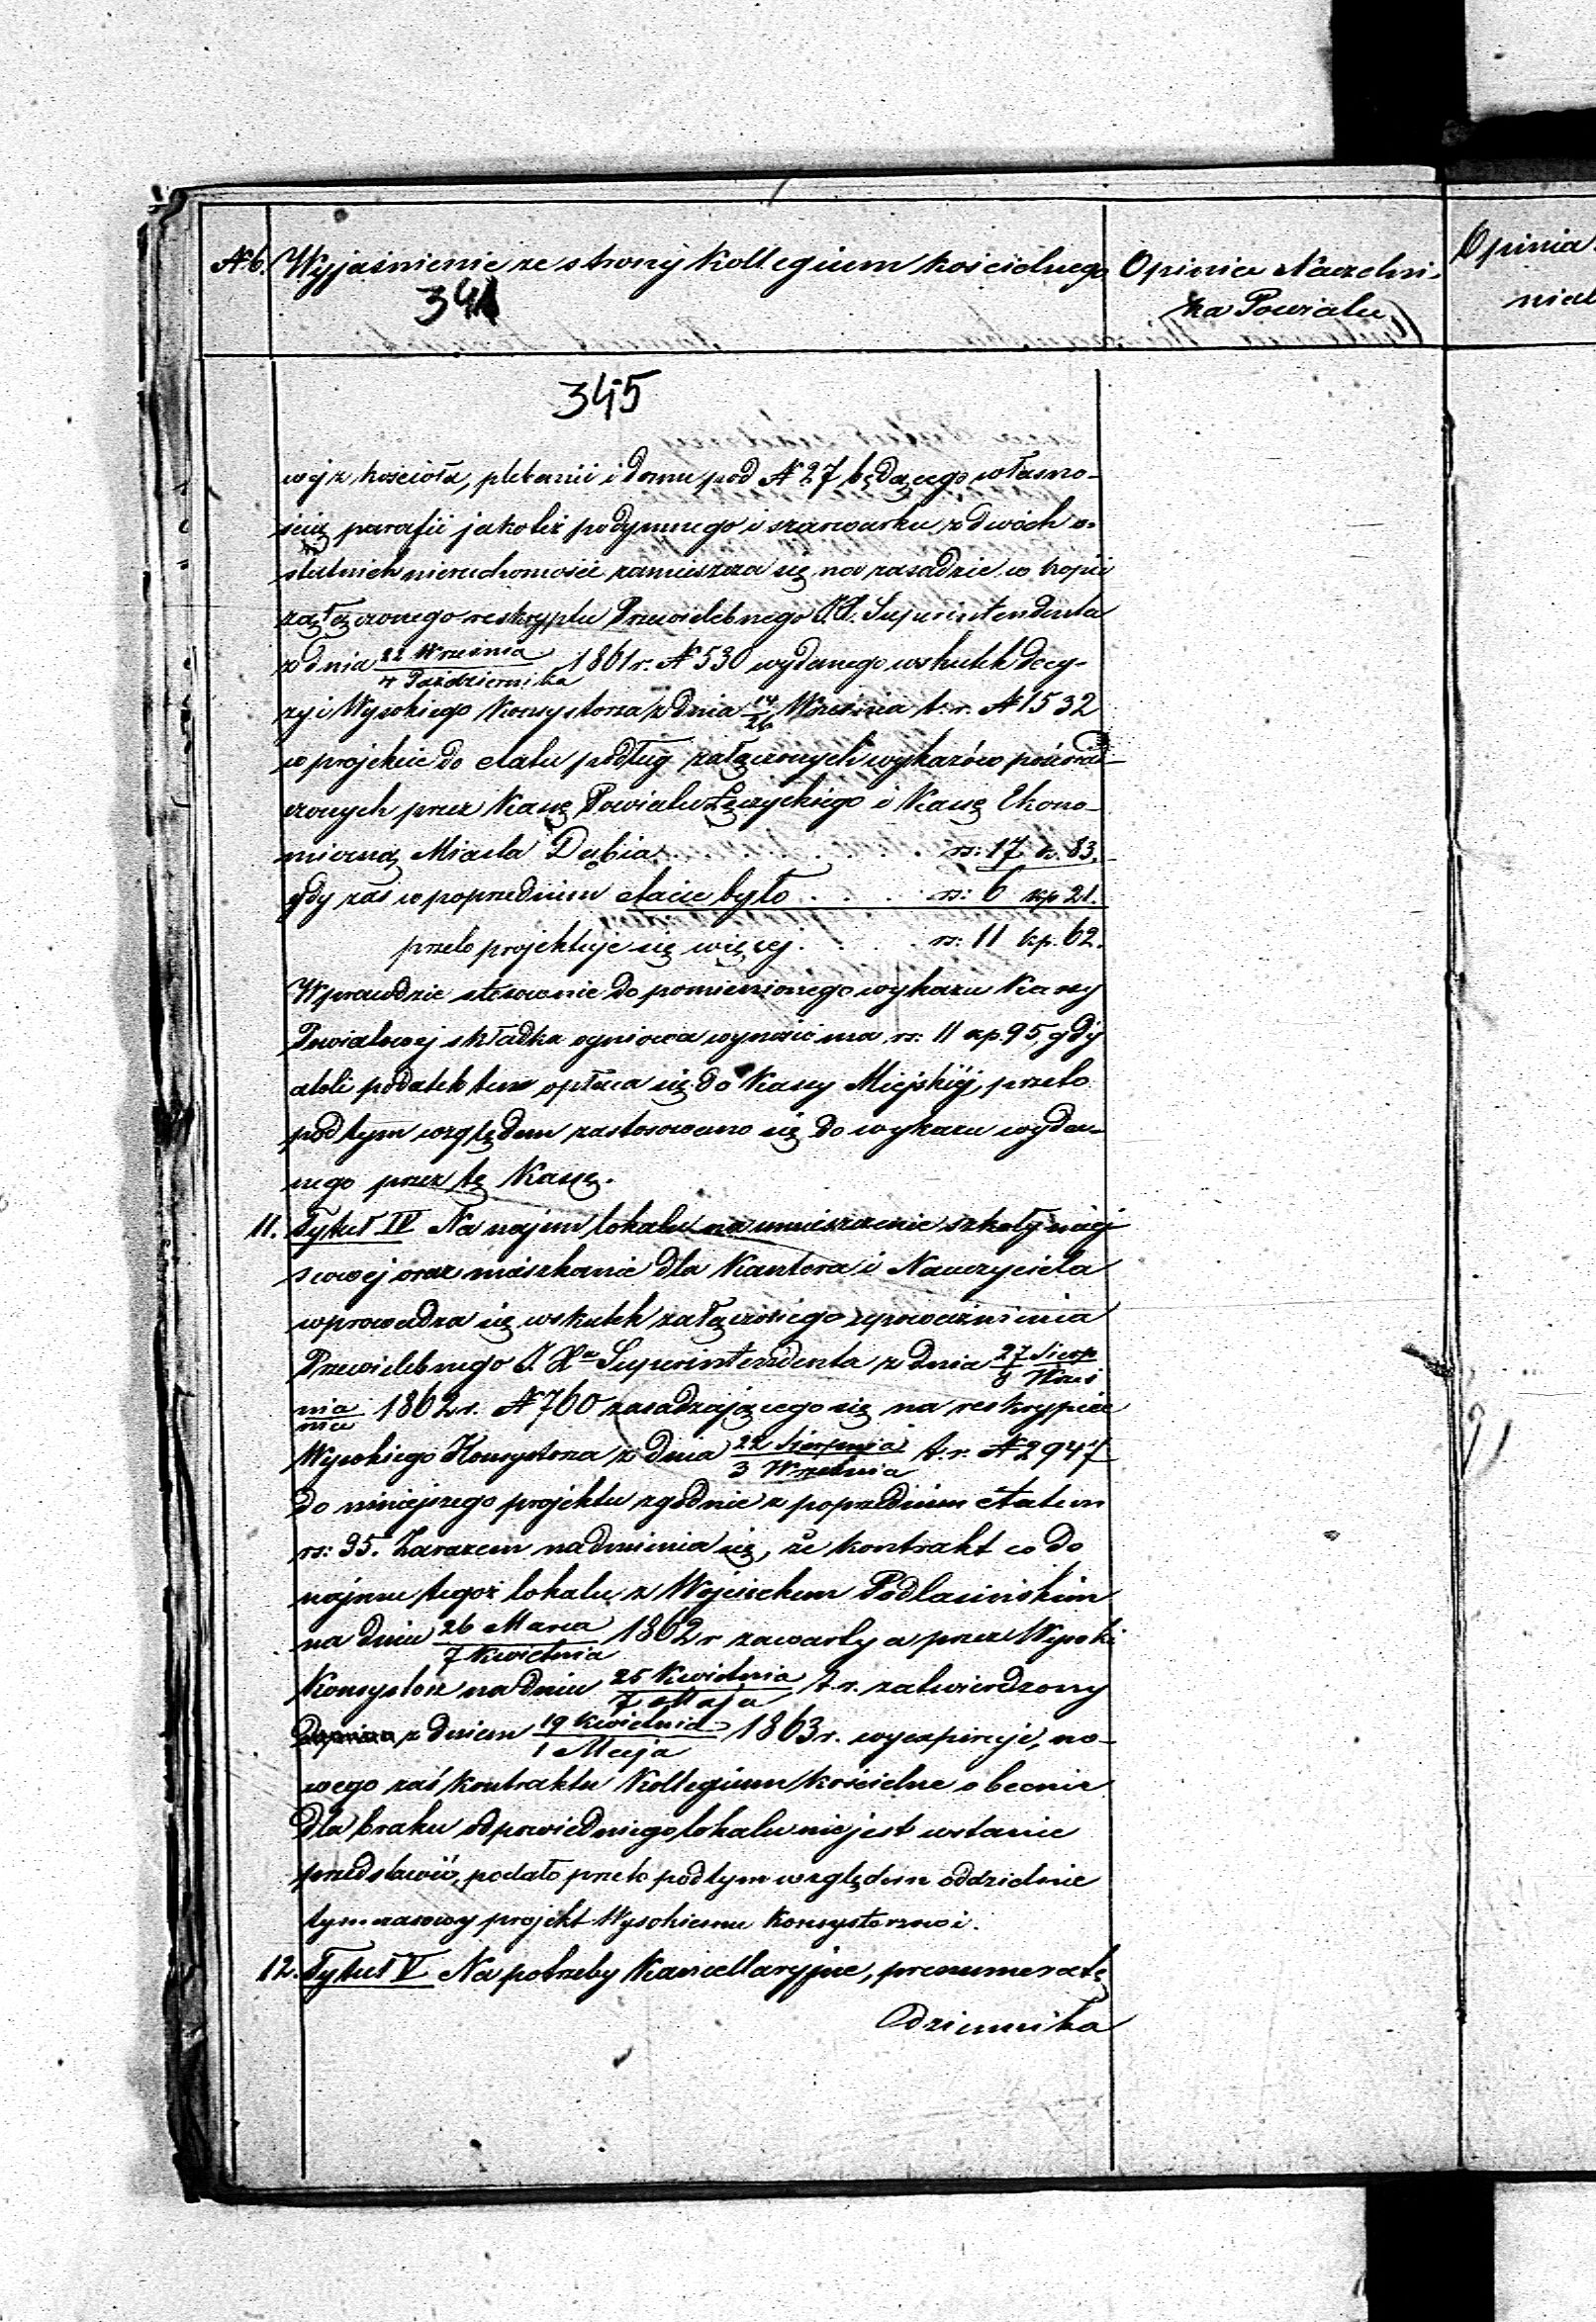 № 6. Wyjaśnienie ze strony Kollegium kościelnego
Opinia Naczelni-
ka Powiatu
Opinia
niat
341
345
wej z kościoła, plebanii i domu pod № 27 będącego własno-
ścią parafii jakoteż podymnego i szarwarku z dwóch o-
statnich nieruchomości zamieszcza się na zasadzie w kopii
załączonego reskryptu Przewielebnego J.X. Superintendenta
z dnia 22 Września / 4 Października 1861 r. № 530 wydanego wskutek decy-
zyi Wysokiego Konsystorza z dnia 14/26 Września t. r. № 1532
w projekcie do etatu podług załączonych wykazów poświad-
czonych przez Kassę Powiatu Łęczyckiego i Kassę Ekono-
miczną Miasta Dąbia . . . . . . . rs: 17 k. 83.
gdy zaś w poprzednim etacie było . . . . rs: 6 kp 21.
przeto projektuje się więcej . . . . rs: 11 kp. 62.
Wprawdzie stosownie do pomienionego wykazu Kassy
Powiatowej składka ogniowa wynosić ma rs: 11 kp. 95, gdy
atoli podatek ten opłaca się do Kassy Miejskiej, przeto
pod tym względem zastosowano się do wykazu wyda-
nego przez tę Kassę.
11. Tytuł IV Na najem lokalu na umieszczenie szkoły miej
scowej oraz mieszkanie dla Kantora i Nauczyciela
wprowadza się wskutek załączonego upoważnienia
Przewielebnego J. Xa Superintendenta z dnia 27 Sierp / 8 Wrześ
nia / nia 1862 r. № 760 zasadzającego się na reskrypcie
Wysokiego Konsystorza z dnia 22 Sierpnia / 3 Września t. r. № 2947
do niniejszego projektu zgodnie z poprzednim etatem
rs: 95. Zarazem nadmienia się, że kontrakt co do
najmu tegoż lokalu z Wojciechem Podlasińskim
na dniu 26 Marca / 7 Kwietnia 1862 r zawarty a przez Wysoki
Konsystorz na dniu 25 Kwietnia / 7 Maja t. r. zatwierdzony
z dniem 19 Kwietnia / 1 Maja 1863 r. wyexpiruje, no-
wego zaś kontraktu Kollegium kościelne obecnie
dla braku odpowiedniego lokalu nie jest wstanie
przedstawić, podało przeto pod tym względem oddzielnie
tymczasowy projekt Wysokiemu Konsystorzowi.
12. Tytuł V Na potrzeby Kancellaryjne, prenumeratę
Dziennika